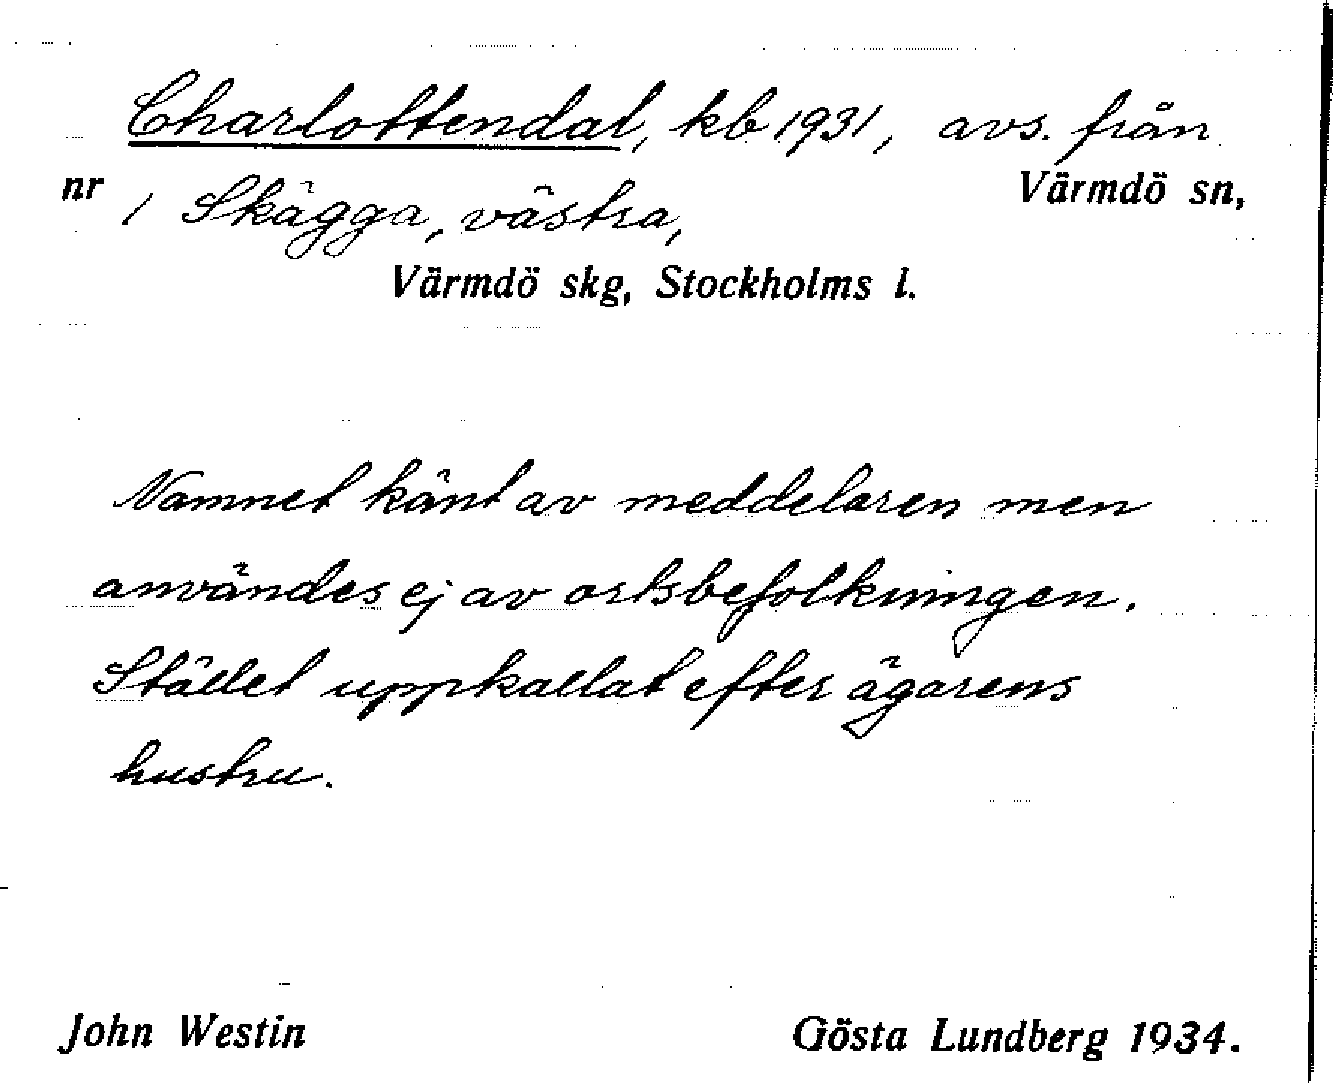 Charlottendal, kb 1931, avs. från
nr 1 Skägga, västra, Värmdö sn,
Värmdö skg, Stockholms l.
Namnet känt av meddelaren men
användes ej av ortsbefolkningen.
Stället uppkallat efter ägarens
hustru.
John Westin Gösta Lundberg 1934.